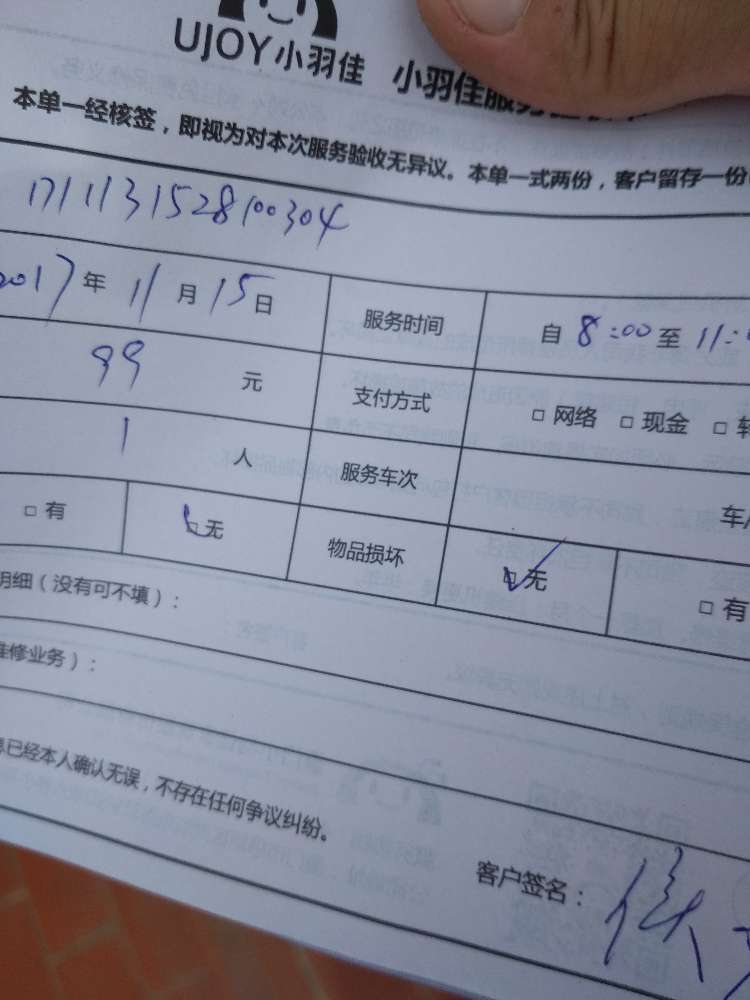 UJOY小羽佳 小羽佳服务
本单一经核签，即视为对本次服务验收无异议。本单一式两份，客户留存一份
1711131528100304
2017年11月15日 服务时间 自8:00至11:
99元 支付方式 □网络 □现金 □
1人 服务车次 车
□有 □无 物品损坏 □无 □有
明细（没有可不填）：
维修业务）：
已经本人确认无误，不存在任何争议纠纷。
客户签名：